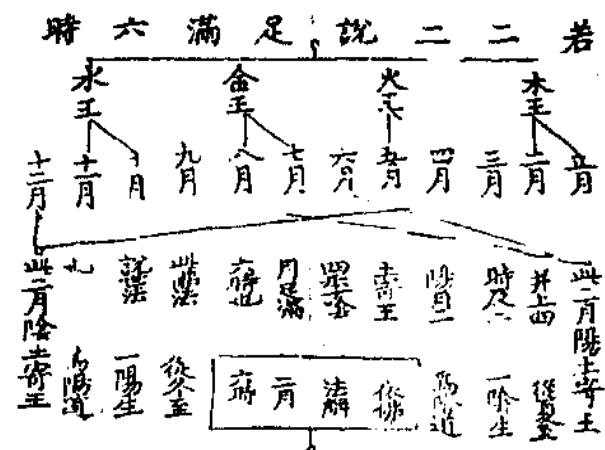 若二二說足滿六時
木王
火王
金王
水王
正月
二月
三月
四月
五月
六月
七月
八月
九月
十月
十一月
十二月
此二月陽土寄王
并上四
時及
土寄王
月足滿
六時也
說法
此二月陰土寄王
從夏至
一陰生
為陰道
法解
二月
六時
從冬至
一陽生
為陽道